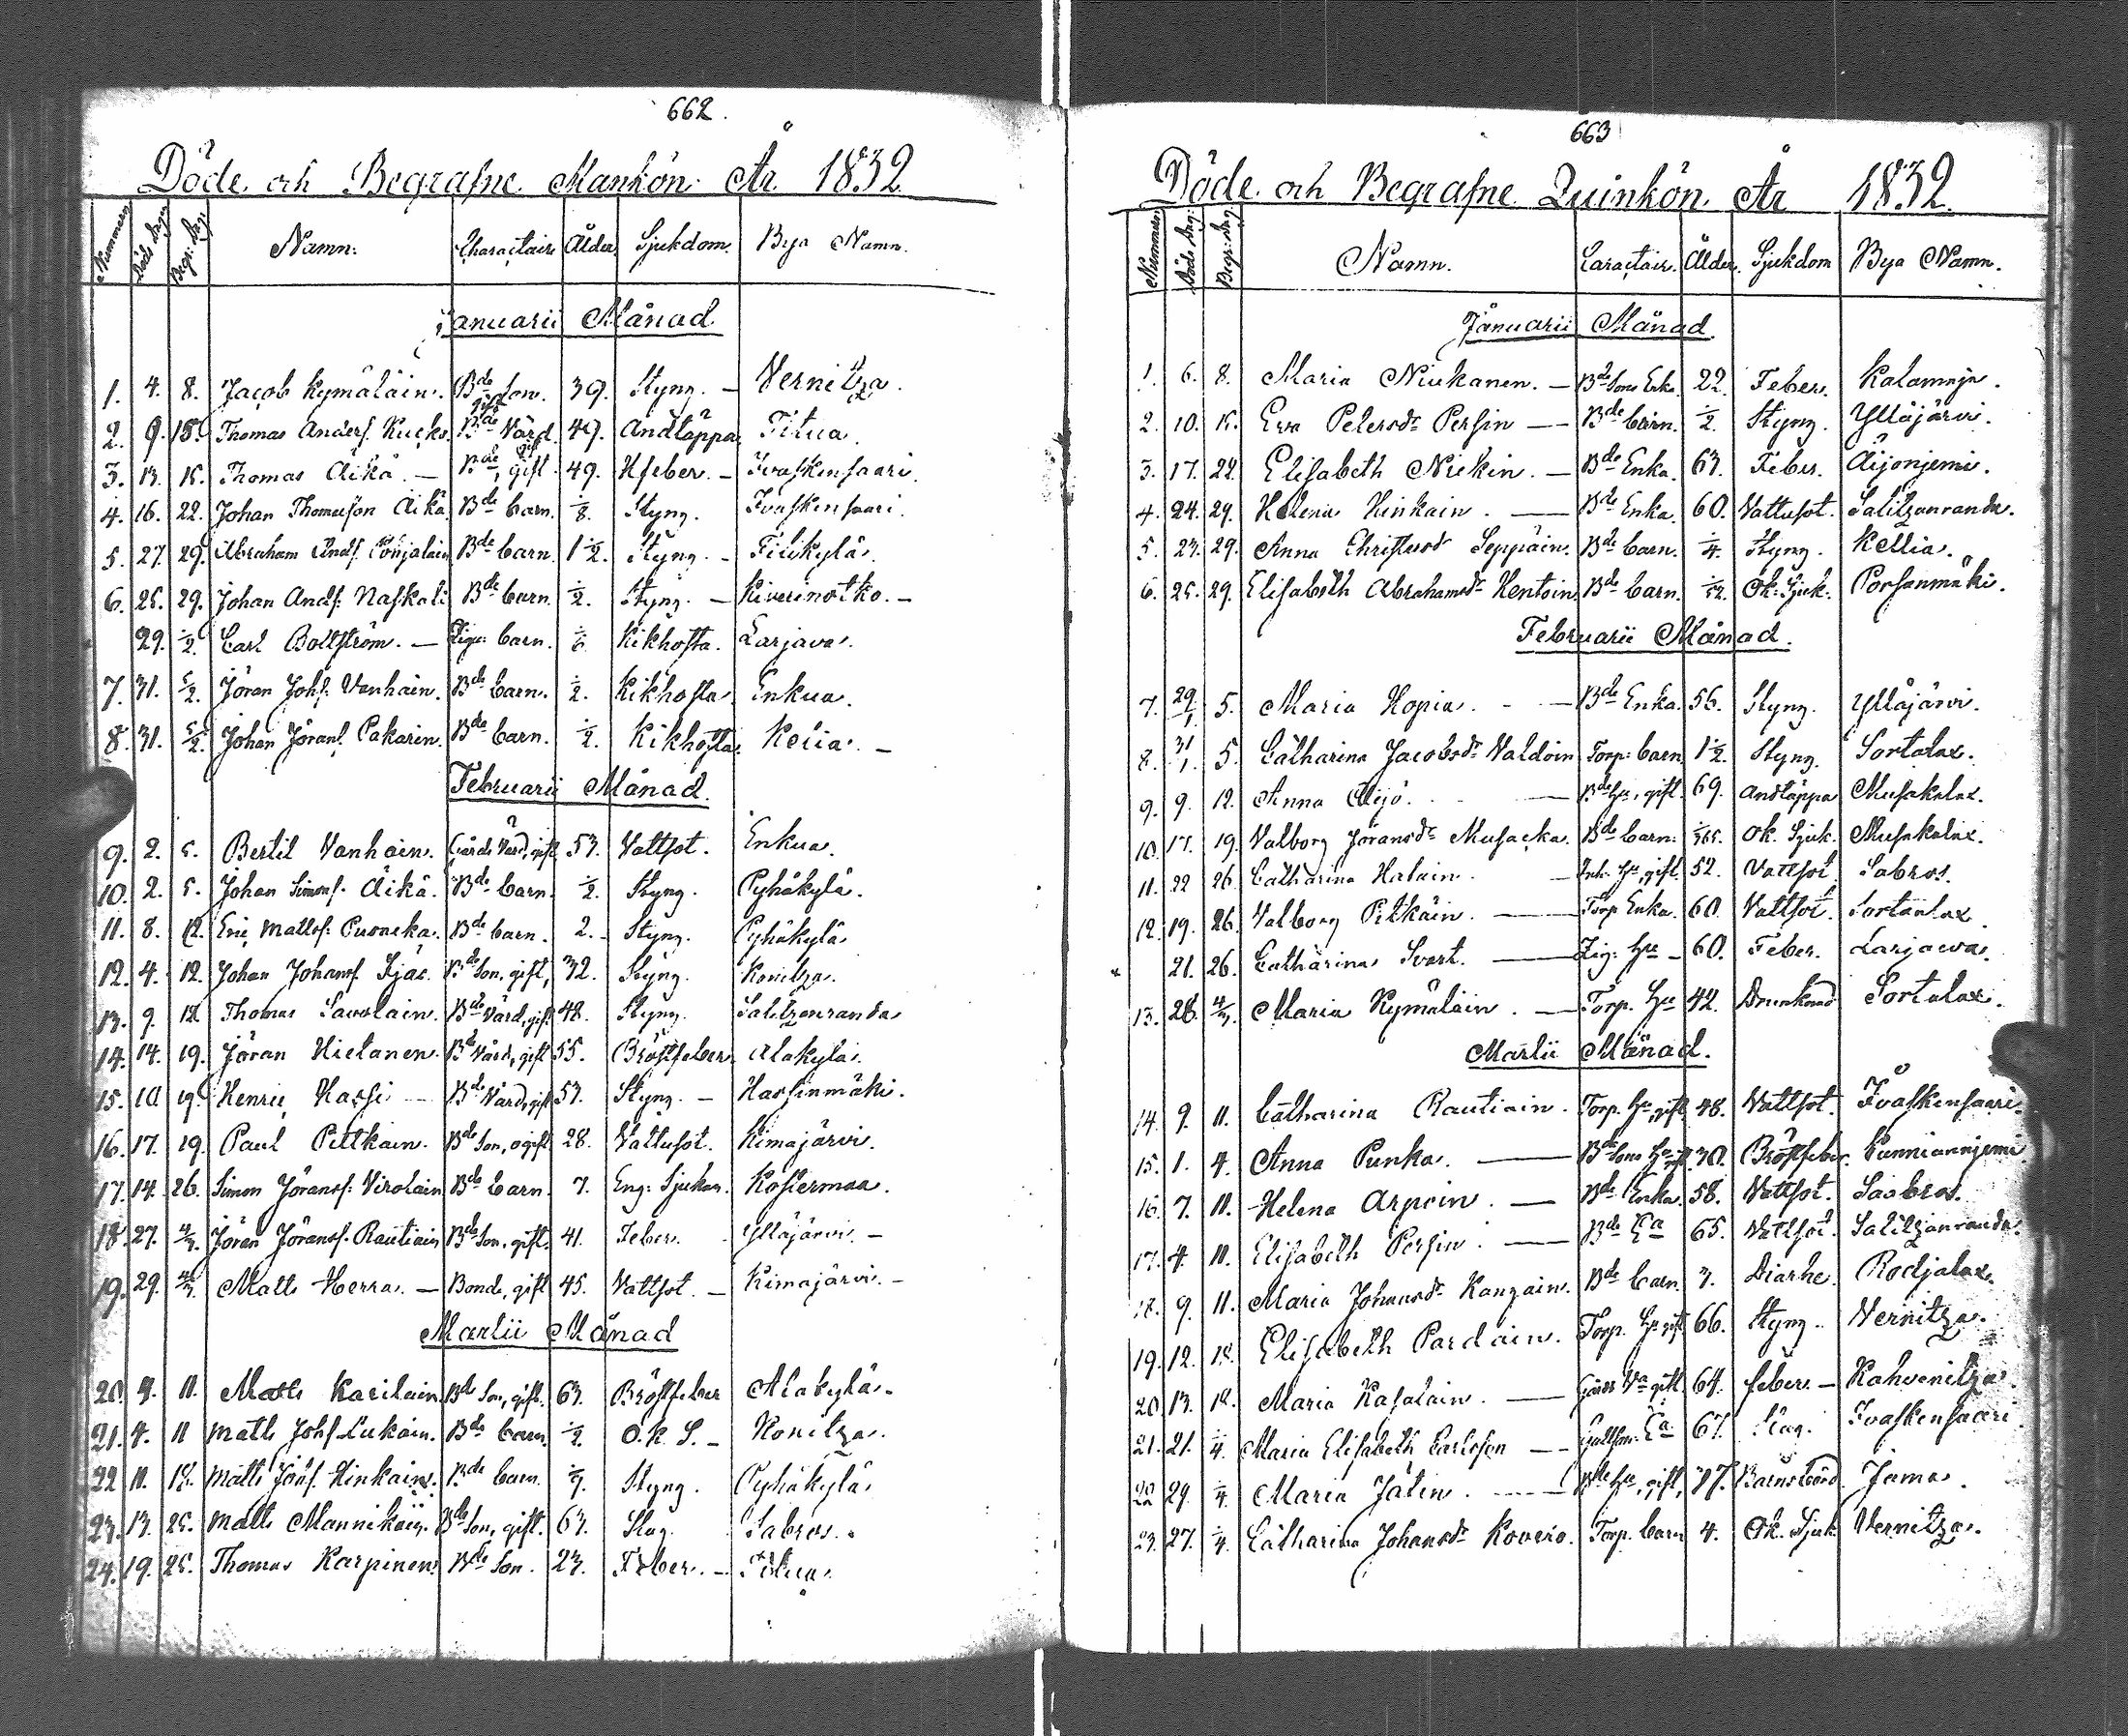 662.
Döde och Begrafne Mankön År 1832
Nummern Döds Dag. Begr: dag. Namn: Charactair Ålder Sjukdom. Bya Namn.
Januarii Månad.
1. 4. 8. Jacob Kymäläin. Bde Son. gift 39. Styng. — Vernitza.
2. 9. 15. Thomas Anders. Kucko. Bde Värd. gift 49. Andtäppa Titua.
3. 13. 15. Thomas Äikä. — Bde, gift 49. Hfeber. — Ivaskensaari.
4. 16. 22. Johan Thomasson Äikä. Bde barn. 1/8. Styng. Ivaskensaari.
5. 27. 29. Abraham Ands. Ponjalain Bde barn. 1 1/2. Styng. — Titikylä.
6. 25. 29. Johan Ands. Naskali Bde barn. 1/2. Styng. — Kiverinotko. —
29. 1/2. Carl Boltström. — Zigu: barn. 1/6 Kikhosta. Larjava.
7. 31. 5/2. Jöran Johs. Vanhain. Bde barn. 1/2. Kikhosta Enkua.
8. 31. 5/2. Johan Jörans. Pakarin. Bde barn. 1/2. Kikhosta. Kelia. —
Februarii Månad.
9. 2. 5. Bertil Vanhain. Gårds Värd, gift 53. Vattsot. Enkua.
10. 2. 5. Johan Simons. Äikä. Bde barn. 1/2. Styng. Pyhäkylä.
11. 8. 12. Eric Matts. Puoncka. Bde barn. 2. Styng. Pyhäkylä
12. 4. 12. Johan Johans. Sjäs. Bde Son, gift, 32. Styng. Konitza.
13. 9. 12 Thomas Savolain. Bde Värd, gift 48. Styng. Salitzenranda
14. 14. 19. Jöran Hietanen. Bde Värd, gift 55. Bröstfeber Alakylä.
15. 10. 19. Henric Hassi — Bde Värd, gift 53. Styng. — Hassinmäki.
16. 17. 19. Paul Pitkäin. Bde Son, ogift 28. Vattusot. Kimajärvi.
17. 14. 26. Simon Jörans. Virolain Bde barn. 7. Eng: Sjukan. Kostermaa.
18. 27. 4/3. Jöran Jörans. Rautiain Bde Son, gift. 41. Feber. Ylläjärvi. —
19. 29. 4/3. Matts Herra. — Bonde, gift 45. Vattsot. — Kimajärvi. —
Martii Månad
20. 4. 11. Matts Karilain Bde Son, gift. 63. Bröstfeber Alakylä.
21. 4. 11 Matts Johs Lukain. Bde barn. 1/2. O. k. S. — Konitza.
22 11. 18. Matts Johs. Hinkain. Bde barn. 1/9. Styng. Pyhäkylä
23. 13. 25. Matts Mannikäin. Bde Son, gift. 63. Slag. Sabros.
24. 19. 25. Thomas Karpinen Bde Son. 23. Feber. — Titua.
663
Döde och Begrafne Quinkön År 1832.
Nummer Döds Dag: Begr: dag. Namn. Caractair. Ålder. Sjukdom Bya Namn.
Januarii Månad.
1. 6. 8. Maria Niukanen. — Bde Sons Enka 22. Feber. Kalamaja.
2. 10. 15. Eva Petersdr Persin — Bde barn. 1/2. Styng. Ylläjärvi.
3. 17. 22. Elisabeth Niekin. — Bde Enka. 63. Feber. Äijonjemi.
4. 24. 29. Helena Hinkain. — Bde Enka. 60. Vattusot. Salitzanranda.
5. 23. 29. Anna Christersdr Seppäin. Bde barn. 1/4. Styng. Kellia.
6. 25. 29. Elisabeth Abrahamsdr Hentoin. Bde barn. 1/52. Ok: Sjuk. Porsanmäki.
Februarii Månad.
7. 29/1 5. Maria Hopia. — Bde Enka. 56. Styng. Ylläjärvi.
8. 31/1 5. Catharina Jacobsdr Valdoin Torp: barn 1 1/2. Styng. Sortalax.
9. 9. 12. Anna Äijö. — Bde hu, gift. 69. Andtäppa Musakalax.
10. 17. 19. Valborg Jöransdr Musacka. Bde barn: 1/365. Ok. Sjuk. Musakalax.
11. 22 26. Catharina Halain. — Inh: Hu, gift. 52. Vattsot. Sabros.
12. 19. 26. Valborg Pitkäin. — Torp Enka. 60. Vattsot. Sortanlax
21. 26. Catharina Svart. — Zig: Hu — 60. Feber. Larjawa.
13. 28. 4/3. Maria Kymäläin. — Torp. Hu 42. Drunknad Sortalax.
Martii Månad.
14. 9. 11. Catharina Rautiain. Torp. hu, gift 48. Vattsot. Ivaskensaari.
15. 1. 4. Anna Punka. — Bde Sons Hu gift 30. Bröstfeber. Kunnianniemi
16. 7. 11. Helena Arpoin. — Bde Enka 58. Vattsot. Saobros.
17. 4. 11. Elisabeth Persin. — Bde Ea 65. Vattsot. Salitzanranda.
18. 9. 11. Maria Johansdr Kanzain. Bde barn 3. Diarhe. Rodjalax.
19. 12. 18. Elisabeth Pardain. Torp. hu gift 66. Styng. Vernitza.
20. 13. 18. Maria Kasalain. — Gårds Va gift 64. feber. — Kahvenitza.
21. 21. 1/4. Maria Elisabeth Carlsson — Ea 67. Slag. Ivaskensaari
22 29. 1/4. Maria Jätin. — Bde hu, gift, 37. Barnsbörd Jama.
23. 27. 1/4. Catharina Johansdr Kovero. Torp. barn 4. Ok. Sjuk. Vernitza.